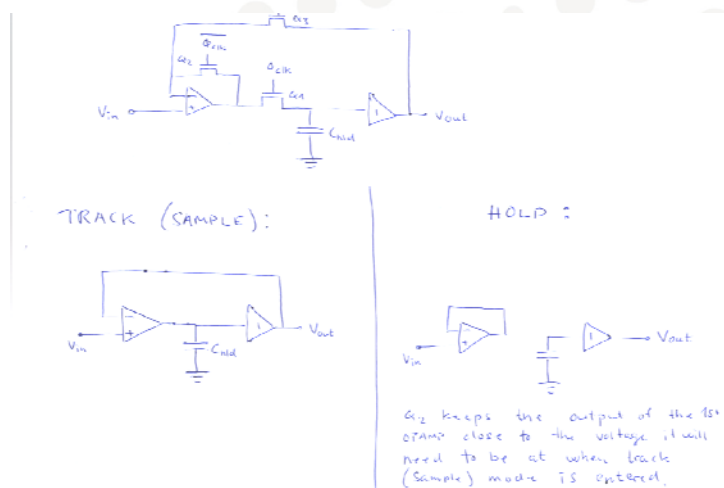 Q3
Φclk
Q2
Φclk
Q1
Vin
+
1
Vout
Chld
TRACK (SAMPLE):
HOLD :
−
+
1
Vin
Vout
Chld
−
+
1
Vin
Vout
Q2 keeps the output of the 1st
OPAMP close to the voltage it will
need to be at when track
(Sample) mode is entered.